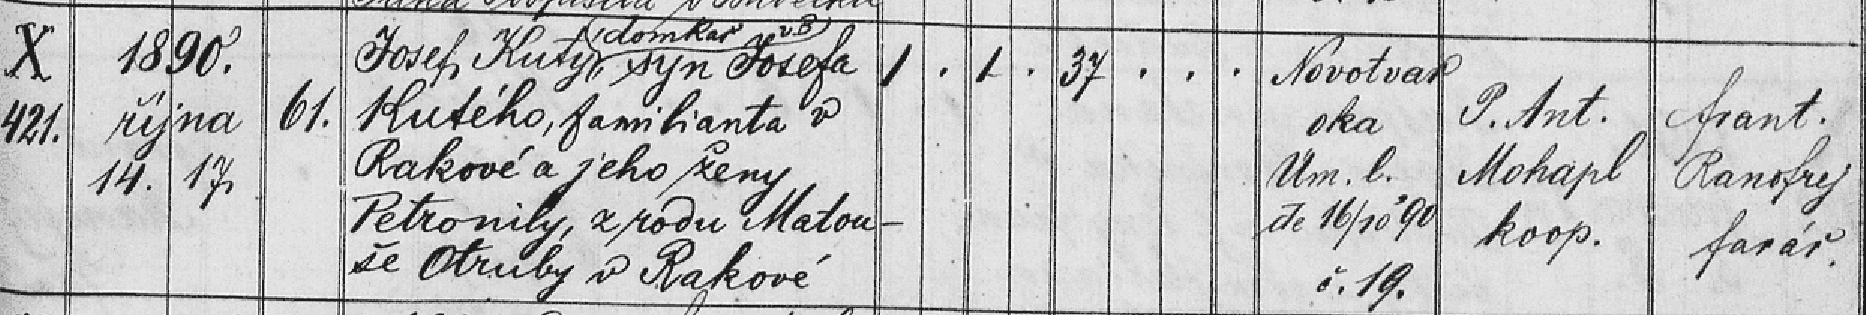 X
421.
1890.
října
14. 17.
61.
Josef Kutý, (domkař v B) syn Josefa
Kutého, familianta v
Rakové a jeho ženy
Petronily, z rodu Matou-
še Otruby v Rakové
1 . 1 . 37 . . .
Novotvar
oka
Um. l.
dte 16/10 90
č. 19.
P. Ant.
Mohapl
koop.
Frant.
Ranofrej
farář.